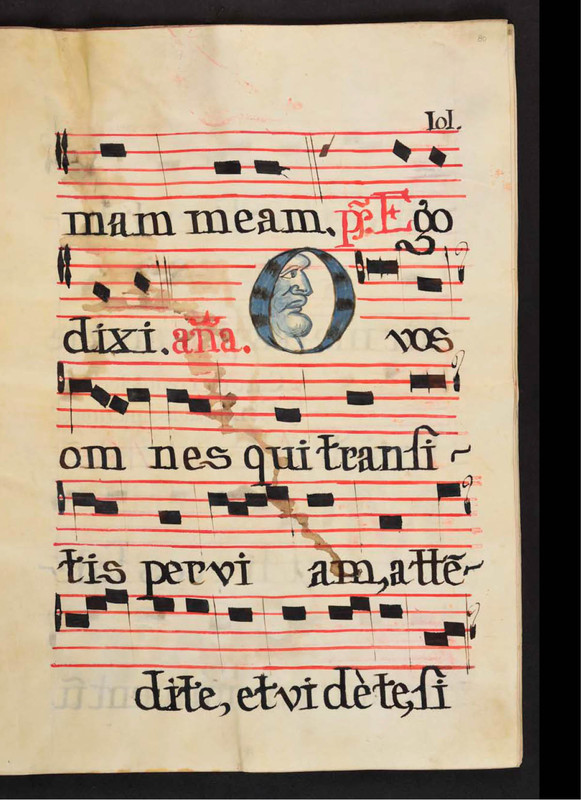 80
IoI.
mam meam. ps̃. Ego
dixi. aña. O vos
om nes qui tranſi~
tis per vi am, attē~
dite, et vi dète, ſi